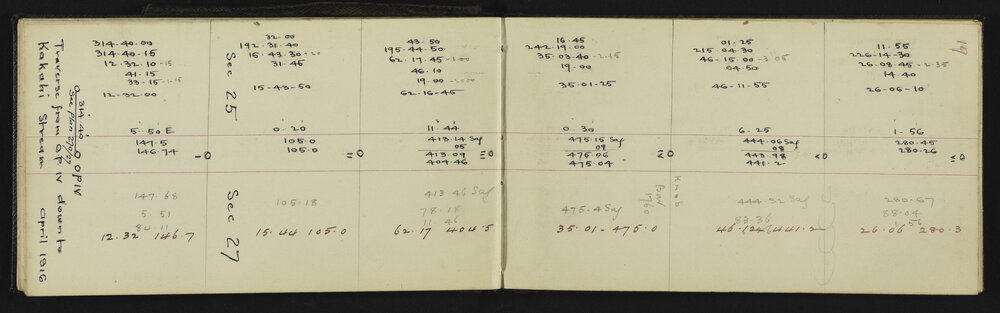 19
Traverse from OP IV down to
Kakahi Stream April 1916
O OPIV
314.40
See Plan
314.40.00
314.40.15
12.32.10 -15
41.15
33.15 -1.15
12.32.00
5.50 E
147.5
146.74
147.68
5.51
84.11
12.32 146.7
Sec 25
Sec 27
32.00
192.31.40
15.43.30
31.45
15.43.50
0.20
105.0
105.0
105.18
15.44 105.0
43.50
195.44.50
62.17.45
46.10
19.00
62.16.45
11.44
413.14 Sag
05
413.09
404.46
413.46 Sag
78.18
11.46
62.17 404.5
16.45
242.19.00
35.03.40 -2.15
19.00
35.01.25
0.30
475.15 Sag
09
475.06
475.04
475.4 Sag
35.01 - 475.0
Knob
01.25
215.04.30
46.15.00 -3.05
04.50
46.11.55
6.25
444.06 Sag
08
443.98
441.2
444.32 Sag
83.36
46.12 441.2
11.55
226.14.30
26.08.45 -2.35
14.40
26.06.10
1.56
280.45
280.26
280.67
88.04
.56
26.06 280.3